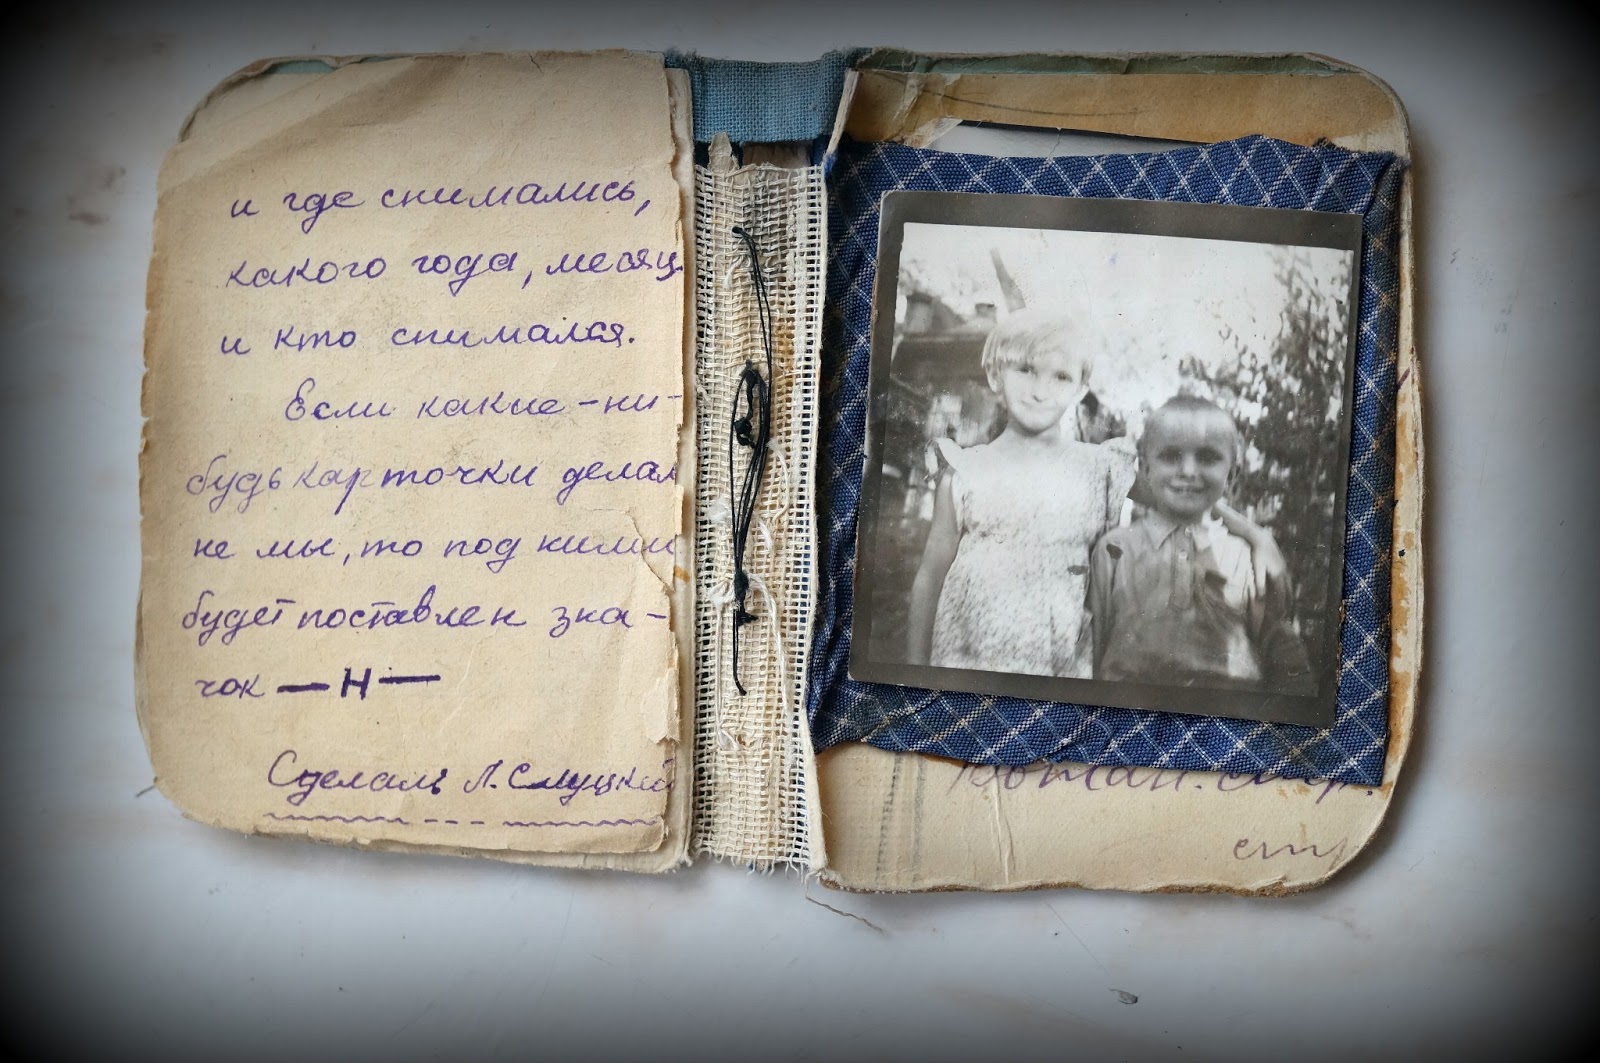 и где снимались,
какого года, месяц
и кто снимался.
Если какие-ни-
будь карточки делал
не мы, то под ними
будет поставлен зна-
чок — Н —
Сделалъ Л. Слуцкий
стр